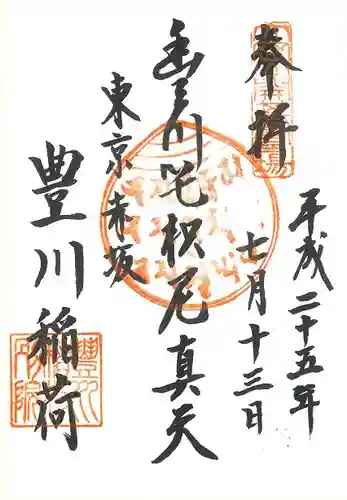 奉拝
平成二十五年
七月十三日
豊川吒枳尼真天
東京赤坂
豊川稲荷